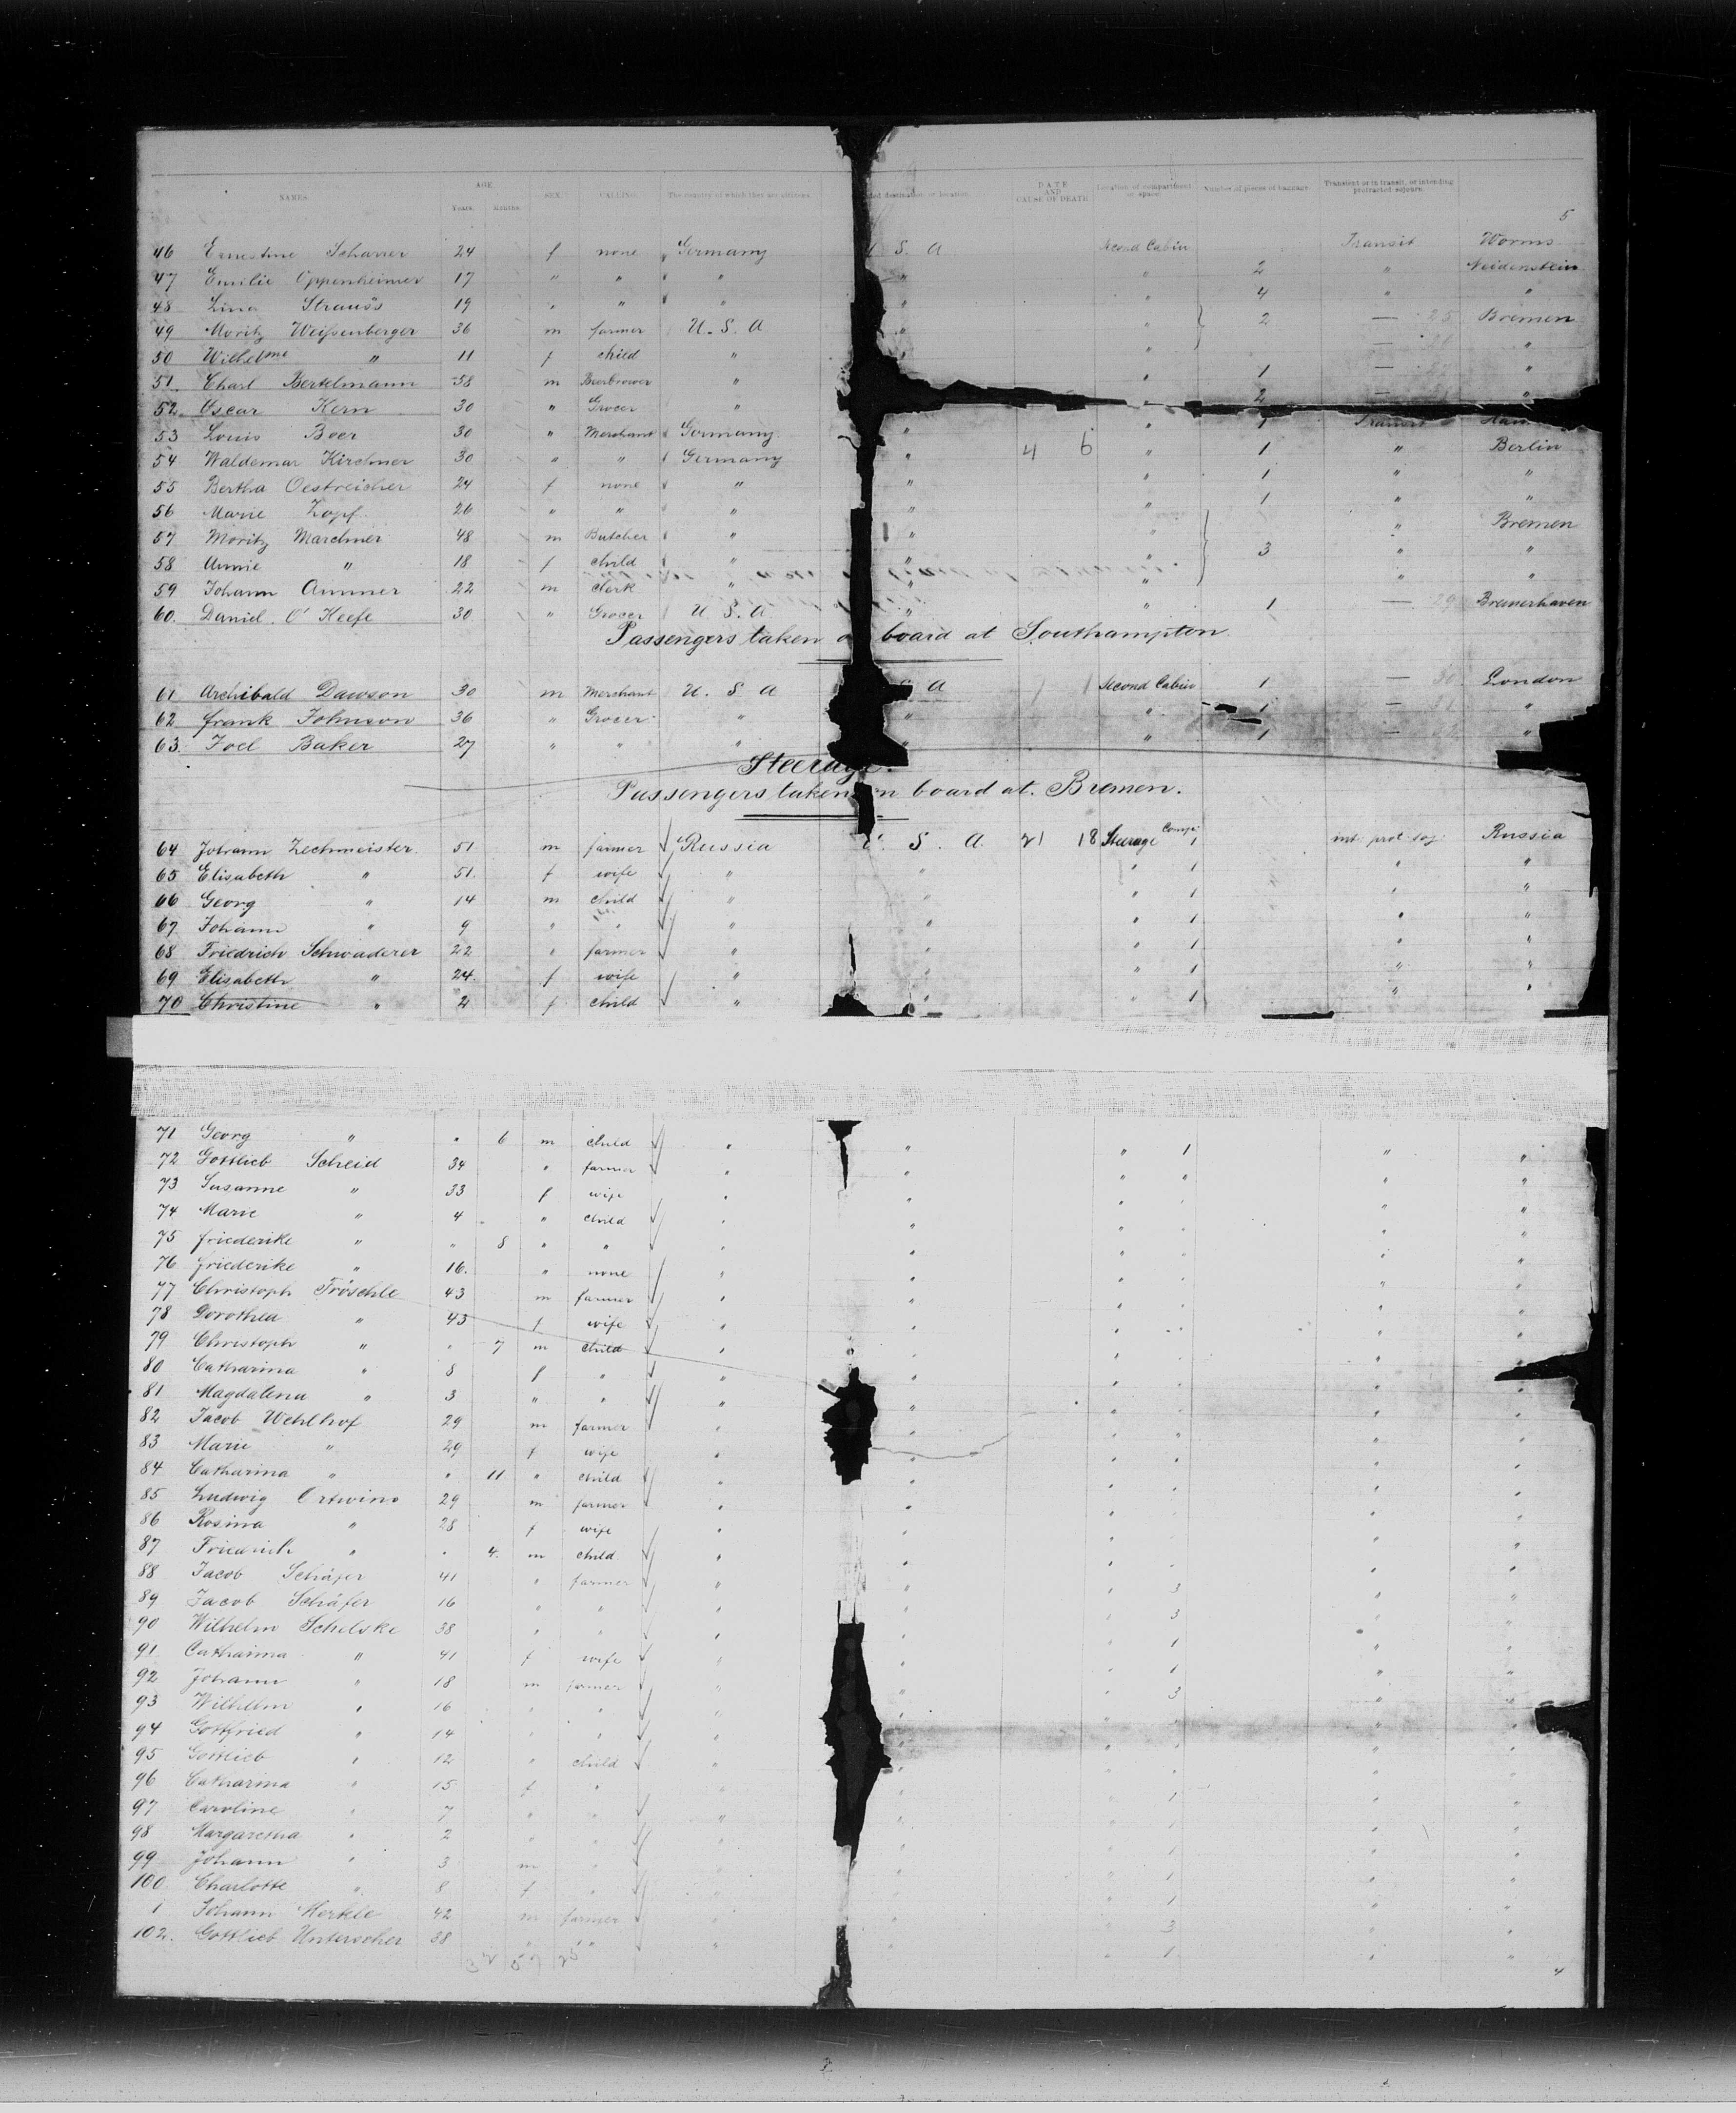 NAMES. AGE. Years. Months. SEX. CALLING. The country of which they are citizens. destination or location. DATE AND CAUSE OF DEATH Location of compartment or space. Number of pieces of baggage. Transient or in transit, or intending protracted sojourn.
5
46 Ernestine Scharrer 24 f none Germany U S. A Second Cabin Transit Worms
47 Emilie Oppenheimer 17 " " " " " " 2 " Neidenstein
48 Lina Strauss 19 " " " " " 4 " "
49 Moritz Weißenberger 36 m farmer U. S. A " " 2 — 25 Bremen
50 Wilhelme " 11 f child " " " — "
51. Charl Bertelmann 58 m Bierbrower " " 1 — "
52. Oscar Kern 30 " Grocer " 2 — "
53 Louis Beer 30 " Merchant Germany " " 1 Transit
54 Waldemar Kirchner 30 " " Germany " 4 6 " 1 " Berlin
55 Bertha Oestreicher 24 f none " " " 1 " "
56 Marie Zopf 26 " " " " " 1 " "
57 Moritz Marchner 48 m Butcher " " " 3 " Bremen
58 Annie " 18 f child " " " " "
59 Johann Ammer 22 m clerk " " " " "
60. Daniel. O' Keefe 30 " Grocer U S. A " " 1 — 29 Bremerhaven
Passengers taken o board at Southampton.
61 Archibald Dawson 30 m Merchant U. S A A Second Cabin 1 — 30 London
62 Frank Johnson 36 " Grocer " " " 1 — 31 "
63. Joel Baker 27 " " " " " 1 — "
Steerage.
Passengers taken n board at. Bremen.
64 Johann Zechmeister. 51 m farmer Russia U. S. A. 21 18 Steerage Comp: 1 int. prot. soj: Russia
65 Elisabeth " 51. f wife " " " 1 " "
66 Georg " 14 m child " " " 1 " "
67 Johann " 9 " " " " " 1 " "
68 Friedrich Schwaderer 22 " farmer " " " 1 " "
69 Elisabeth " 24. f wife " " " 1 " "
70 Christine " 2 f child " " " 1 " "
71 Georg " " 6 m child " " " 1 " "
72 Gottlieb Scheid 34 " farmer " " " " " "
73 Susanne " 33 f wife " " " " " "
74 Marie " 4 " child " " " " " "
75 friederike " " 8 " " " " " " " "
76 friederike " 16. " none " " " " " "
77 Christoph Fröschle 43 m farmer " " " " " "
78 Dorothea " 43 f wife " " " " " "
79 Christoph " " 7 m child " " " " " "
80 Catharina " 8 f " " " " " " "
81 Magdalena " 3 " " " " " " " "
82 Jacob Wehlhof 29 m farmer " " " " " "
83 Marie " 29 f wife " " " " " "
84 Catharina " " 11 " child " " " " " "
85 Ludwig Ortwino 29 m farmer " " " " " "
86 Rosina " 28 f wife " " " "
87 Friedrich " " 4. m child " " " " " "
88 Jacob Schäfer 41 " farmer " " " 3 " "
89 Jacob Schäfer 16 " " " " " 3 " "
90 Wilhelm Schelske 38 " " " " " 1 " "
91. Catharina " 41 f wife " " " 1 " "
92 Johann " 18 m farmer " " " 3 " "
93 Wilhelm " 16 " " " " " " " "
94 Gottfried " 14 " " " " " " " "
95 Gottlieb " 12 " child " " " " " "
96 Catharina " 15 f " " " " 1 " "
97 Caroline " 7 " " " " " 1 " "
98 Margaretha " 2 " " " " " 1 " "
99 Johann " 3 m " " " " 1 " "
100 Charlotte " 8 f " " " " 1 " "
1 Johann Herkle 42 m farmer " " " 3 " "
102. Gottlieb Unterseher 38 " " " " " 1 " "
32 57 25
4